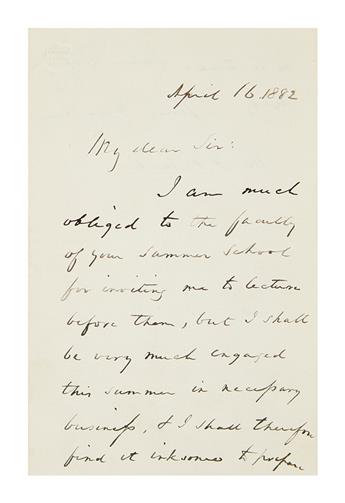 April 16. 1882
My dear Sir:
I am much
obliged to the faculty
of your Summer School
for inviting me to lecture
before them, but I shall
be very much engaged
this summer in necessary
business, & I shall therefore
find it irksome to prepare